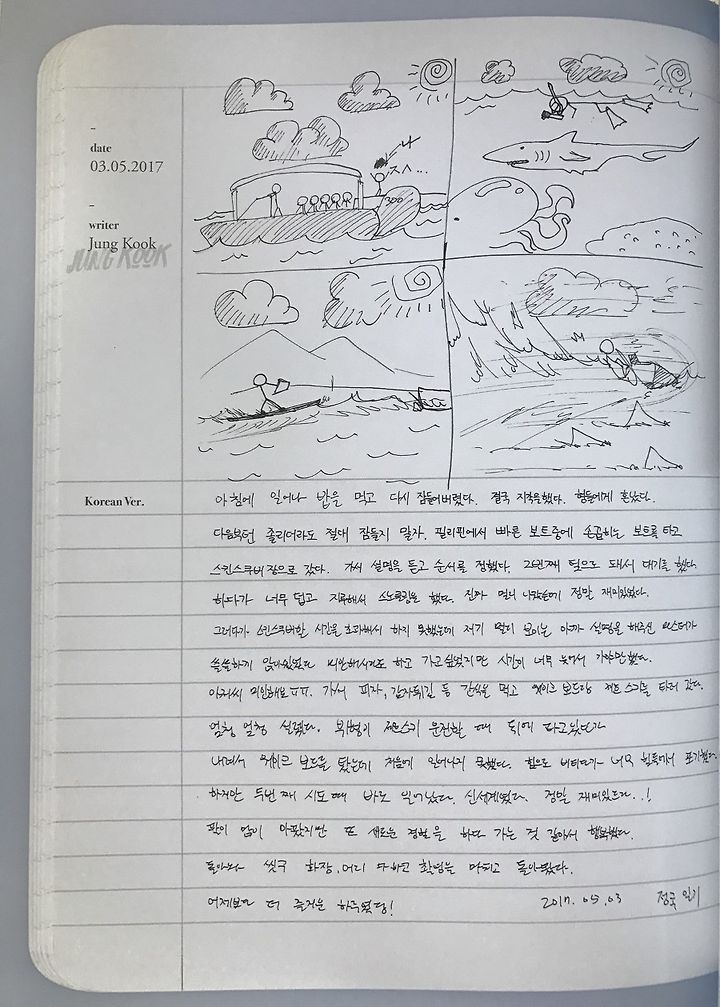 date
03.05.2017
writer
Jung Kook
JUNG KOOK
나
300
Korean Ver.
아침에 일어나 밥을 먹고 다시 잠들어버렸다. 결국 지각을했다. 형들에게 혼났다.
다음부턴 졸리더라도 절대 잠들지 말자. 필리핀에서 빠른 보트중에 손꼽히는 보트를 타고
스킨스쿠버장으로 갔다. 가서 설명을 듣고 순서를 정했다. 2번째 팀으로 돼서 대기를 했다.
하다가 너무 덥고 지루해서 스노클링을 했다. 진짜 멀리 나갔는데 정말 재미있었다.
그러다가 스킨스쿠버한 시간을 초과해서 하지 못했는데 저기 멀리 보이는 아까 설명을 해주신 마스터가
쓸쓸하게 앉아있었다 미안해서라도 하고 가고싶었지만 시간이 너무 늦어서 가야만했다.
아저씨 미안해요ㅠㅠ. 가서 피자, 감자튀김 등 간식을 먹고 웨이크 보드랑 제트 스키를 타러 갔다.
엄청 엄청 신났다. 제트스키 운전할 때 뒤에 타고있다가
내려서 웨이크 보드를 탔는데 처음에 일어나지 못했다. 힘으로 버티다가 너무 힘들어서 포기했다.
하지만 두번째 시도때 바로 일어났다. 신세계였다. 정말 재미있드라..!
팔이 엄청 아팠지만 또 새로운 경험을 하다 가는 것 같아서 행복했다.
돌아와 씻구 화장, 머리 다하고 촬영을 마치고 돌아왔다.
어제보다 더 즐거운 하루였당!
2017. 05. 03 정국 일기